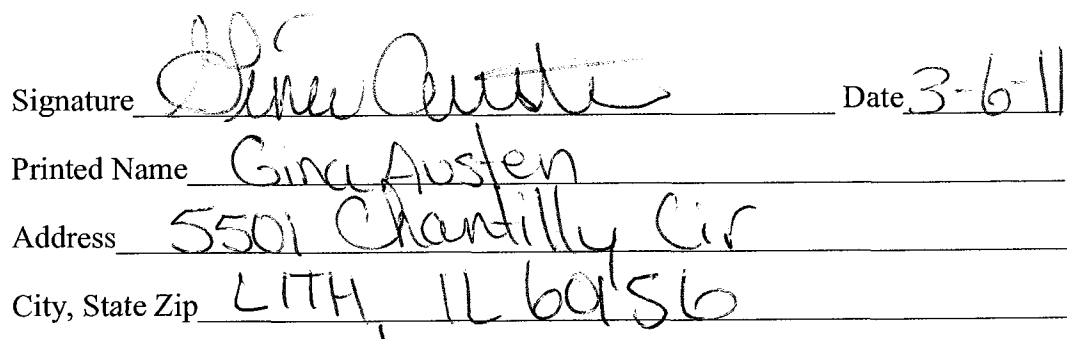 Signature Gina Austen Date 3-6-11
Printed Name Gina Austen
Address 5501 Chantilly Cir
City, State Zip LITH, IL 60156